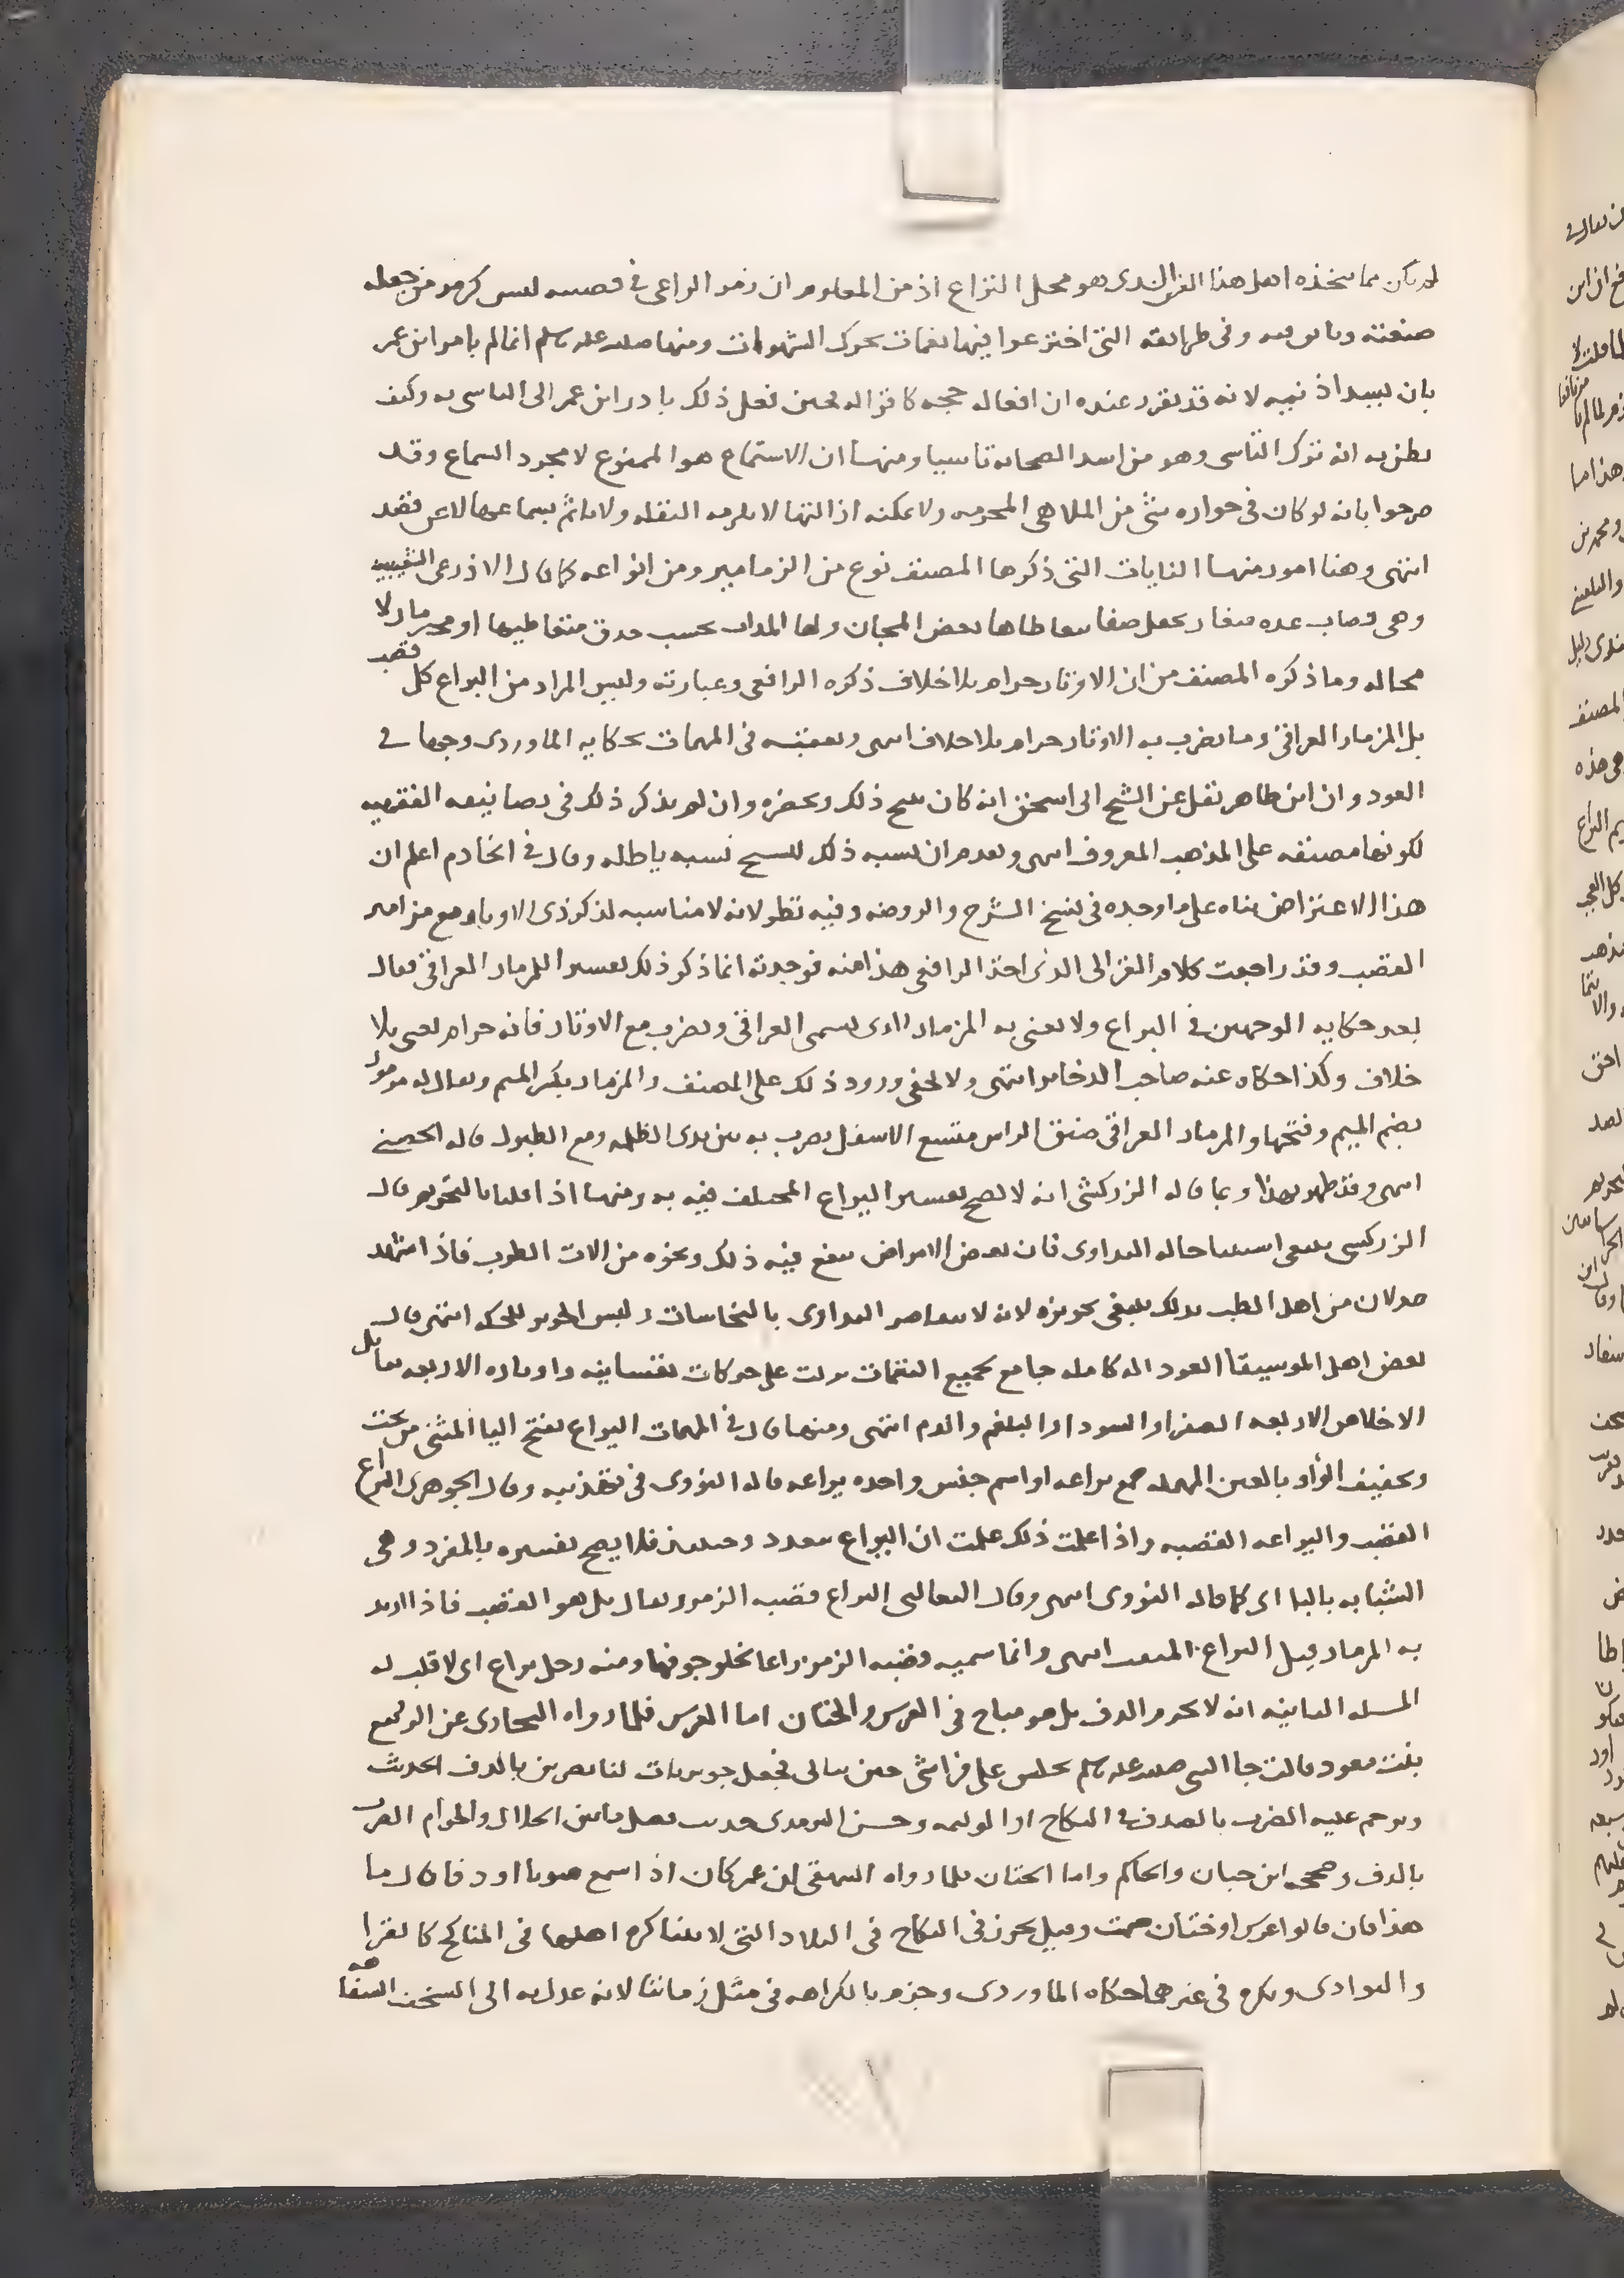 لم يكن مما يتخذه اهل هذا الفن الذى هو محل النزاع اذ من المعلوم ان زمر الراعى فى قصبته ليس كزمر من جعله
صنعته وتانق فيه وفى طرايقه التى اخترعوا فيها نغمات تحرك الشهوات ومنها صلى الله عليه وسلم انما لم يامر ابن عمر
بان يسد اذنيه لانه قد تقرر عنده ان افعاله حجة كاقواله فحين فعل ذلك بادر ابن عمر الى التاسى به وكيف
يظن به انه ترك التاسى وهو من اشد الصحابة تاسيا ومنها ان الاستماع هو الممنوع لا مجرد السماع وقد
صرحوا بانه لو كان فى جواره شى من الملاهى المحرمة ولا يمكنه ازالتها لا يلزمه النقلة ولا ياثم بسماعها لا عن قصد
انتهى وهنا امور منها النايات التى ذكرها المصنف نوع من الزمامير ومن انواعه كما قال الاذرعى
وهى قصاب عدة صغار يجعل صفا يتعاطاها بعض المجان ولها المداب بحسب حذق متعاطيها او
محاله وما ذكره المصنف من ان الاوتار حرام بلا خلاف ذكره الرافعى وعبارته وليس المراد من اليراع كل قصب
بل المزمار العراقى وما يضرب به الاوتار حرام بلا خلاف انتهى وتعقبه فى المهمات بحكاية الماوردى وجها فى
العود وان ابن طاهر نقل عن الشيخ ابى اسحق انه كان يبيح ذلك ويحضره وان لم يذكر ذلك فى تصانيفه الفقهية
لكونها مصنفه على المذهب المعروف انتهى وتقدم ان نسبة ذلك للشيخ نسبة باطلة وقال فى الخادم اعلم ان
هذا الاعتراض بناه على ما وجده فى نسخ الشرح والروضة وفيه نظر لانه لا مناسبة لذكر ذى الاوتار مع مزامير
القصب وقد راجعت كلام الغزالى الذى اخذ الرافعى هذا منه فوجدته انما ذكر ذلك تفسيرا للمزمار العراقى فقال
بعد حكاية الوجهين فى اليراع ولا يعنى به المزمار الذى يسمى العراقى ويضرب مع الاوتار فانه حرام يعنى بلا
خلاف وكذا حكاه عنه صاحب الدخاير انتهى ولا يخفى ورود ذلك على المصنف والمزمار بكسر الميم ويقال له مزمور
بضم الميم وفتحها والمزمار العراقى ضيق الراس متسع الاسفل يضرب به بين يدى الظلمة ومع الطبول قاله الحصنى
انتهى وقد ظهر بهذا وبما قاله الزركشى انه لا يصح تفسير اليراع المختلف فيه به ومنها اذا قلنا بالتحريم قال
الزركشى ينبغى استثنا حالة التداوى فان بعض الامراض ينفع فيه ذلك ونحوه من الات الطرب فاذا شهد
عدلان من اهل الطب بذلك ينبغى تجويزه لانه لا يتقاصر التداوى بالنجاسات ولبس الحرير للحكة انتهى قال
بعض اهل الموسيقا العود اله كامله جامع لجميع النغمات مرتب على حركات نفسانيه واوتاره الاربعة تقابل
الاخلاط الاربعة الصفرا والسودا والبلغم والدم انتهى ومنها قال فى المهمات اليراع بفتح اليا المثنى من تحت
وتخفيف الراو بالعين المهملة جمع يراعه او اسم جنس واحده يراعه قاله النووى فى تهذيبه وقال الجوهرى اليراع
القصب واليراعة القصبة واذا علمت ذلك علمت ان اليراع متعدد وحينئذ فلا يصح تفسيره بالمفرد وهى
الشبابه بالبا اى كما قاله النووى انتهى وقال الثعالبى اليراع قصبة الزمر ويقال بل هو القصب فاذا اريد
به المزمار قيل اليراع المثقب انتهى وانما سميت قصبة الزمر يراعا لخلو جوفها ومنه رجل يراع اى لا قلب له
المسلة الثانيه انه لا يحرم الدف بل هو مباح فى العرس والختان اما العرس فلما رواه البخارى عن الربيع
بنت معود قالت جا النبى صلى الله عليه وسلم يجلس على فراشى حين بنا لى فجعل جويريات لنا يضربن بالدف الحديث
وترجم عليه الضرب بالدف فى النكاح او الوليمة وحسن الترمذى حديث فصل ما بين الحلال والحرام الضرب
بالدف وصححه ابن حبان والحاكم واما الختان فلما رواه البيهقى ان عمر كان اذا سمع صوتا او دفا قال ما
هذا فان قالوا عرس او ختان صمت وقيل يجوز فى النكاح فى البلاد التى لا يتناكره اهلها فى المناكح كالقرا
والبوادى ويكره فى غيرهما حكاه الماوردى وجزم بالكراهة فى مثل زماننا لانه عدل به الى السخف والسفاهة